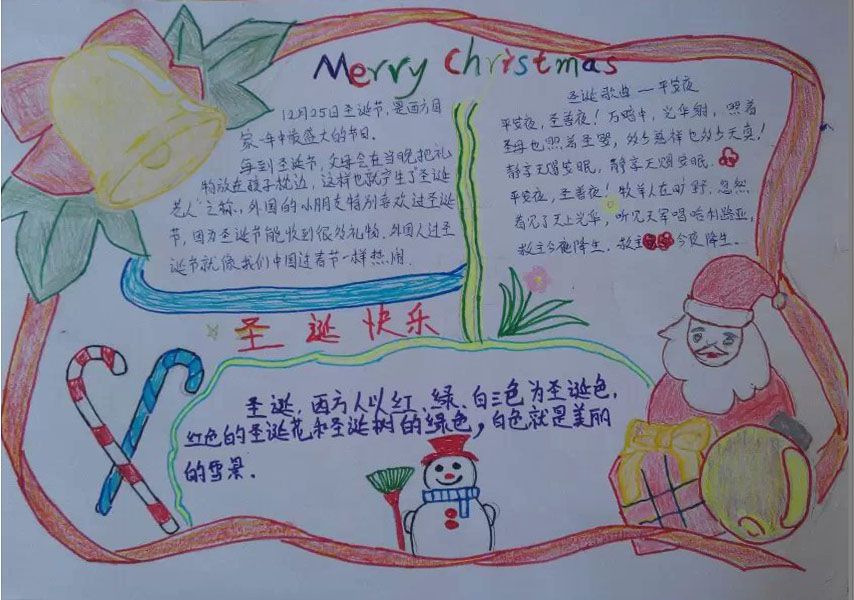 Merry Christmas
12月25日圣诞节,是西方国
家一年中最盛大的节日。
每到圣诞节,父母会在当晚把礼
物放在孩子枕边,这样也就产生了“圣诞
老人”之称,外国的小朋友特别喜欢过圣诞
节,因为圣诞节能收到很多礼物。外国人过圣
诞节就像我们中国过春节一样热闹.
圣诞歌曲—平安夜
平安夜,圣善夜!万暗中,光华射,照着
圣母也照着圣婴,多少慈祥也多少天真!
静享天赐安眠,静享天赐安眠.
平安夜,圣善夜!牧羊人在旷野,忽然
看见了天上光华,听见天军唱哈利路亚,
救主今夜降生.救主今夜降生.
圣诞快乐
圣诞,西方人以红、绿、白三色为圣诞色,
红色的圣诞花和圣诞树的绿色,白色就是美丽
的雪景.